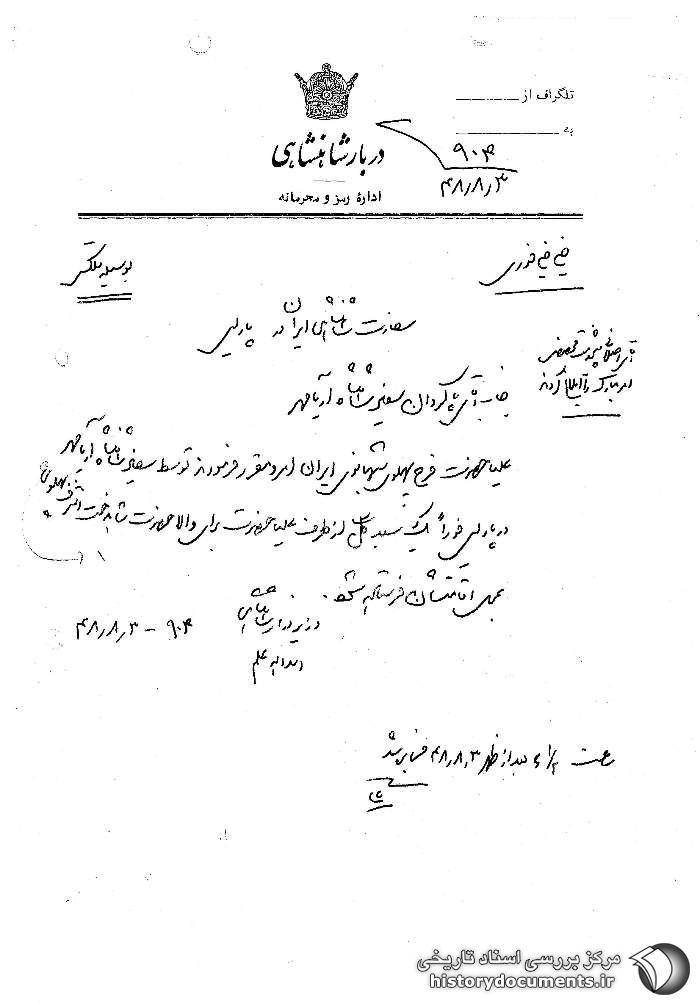 تلگراف از
به
دربار شاهنشاهی
ادارهٔ رمز و محرمانه
۹۰۴
۴۸٫۸٫۳
خیلی خیلی فوری
بوسیله تلکس
سفارت شاهنشاهی ایران در پاریس
جناب آقای پاکروان سفیر شاهنشاه آریامهر
علیاحضرت فرح پهلوی شهبانوی ایران امر و مقرر فرمودند توسط سفیر شاهنشاه آریامهر
در پاریس فوراً یک سبد گل از طرف علیاحضرت برای والاحضرت شاهدخت اشرف پهلوی
بمحل اقامتشان فرستاده شود.
وزیر دربار شاهنشاهی
اسدالله علم
۹۰۴ - ۴۸٫۸٫۳
ساعت ۶٫۱/۲ بعد از ظهر ۴۸٫۸٫۳ مخابره شد
مرکز بررسی اسناد تاریخی
historydocuments.ir